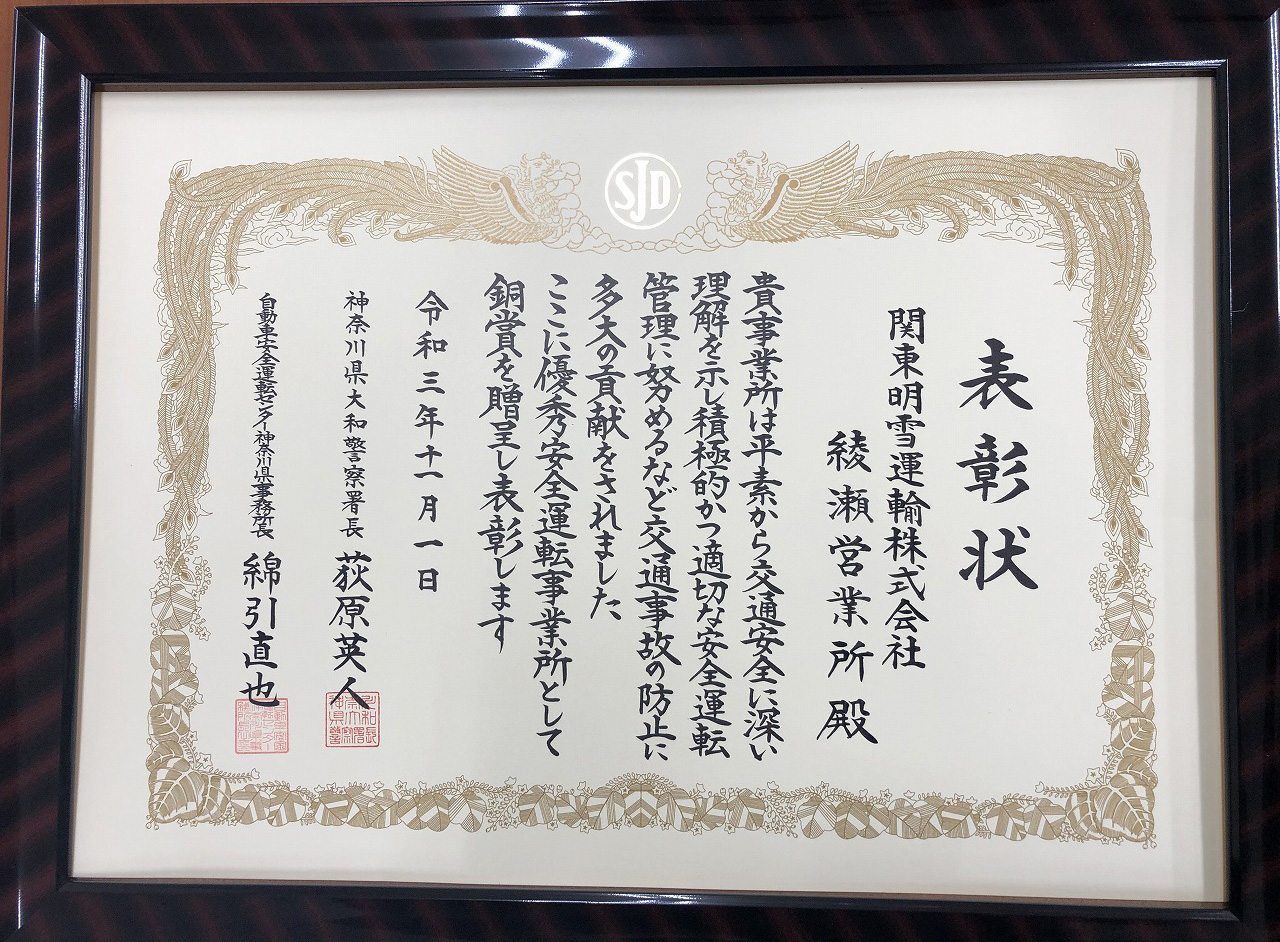 SJD
表彰状
関東明雪運輸株式会社
綾瀬営業所殿
貴事業所は平素から交通安全に深い
理解を示し積極的かつ適切な安全運転
管理に努めるなど交通事故の防止に
多大の貢献をされました
ここに優秀安全運転事業所として
銅賞を贈呈し表彰します
令和三年十一月一日
神奈川県大和警察署長 荻原英人
自動車安全運転センター神奈川県事務所長 綿引直也